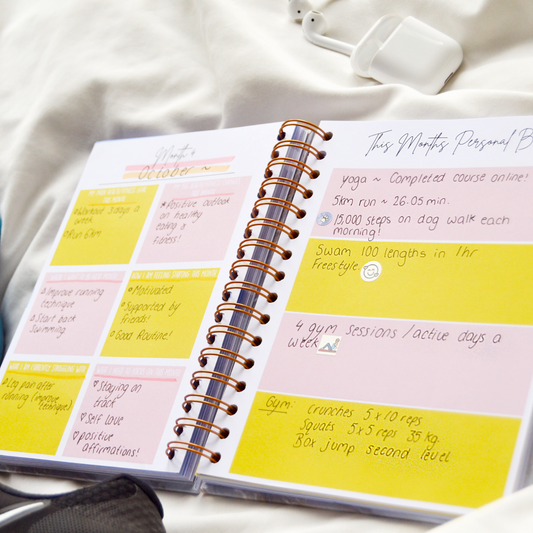 Month ~
October ~
Workout 3 days a
week
Run 6km
Positive outlook
on healthy
eating &
Fitness!
Improve running
technique
Start back
Swimming
Motivated
Supported by
friends!
Good Routine!
Leg pain after
running (improve
technique)
Staying on
track
Self love
positive
affirmations!
This Months Personal B
Yoga ~ Completed course online!
5km run ~ 26.05 min.
15,000 steps on dog walk each
morning!
Swam 100 lengths in 1hr
Freestyle
4 gym sessions / active days a
week
Gym: crunches 5x10 reps
Squats 5x5 reps 35kg.
Box jump second level